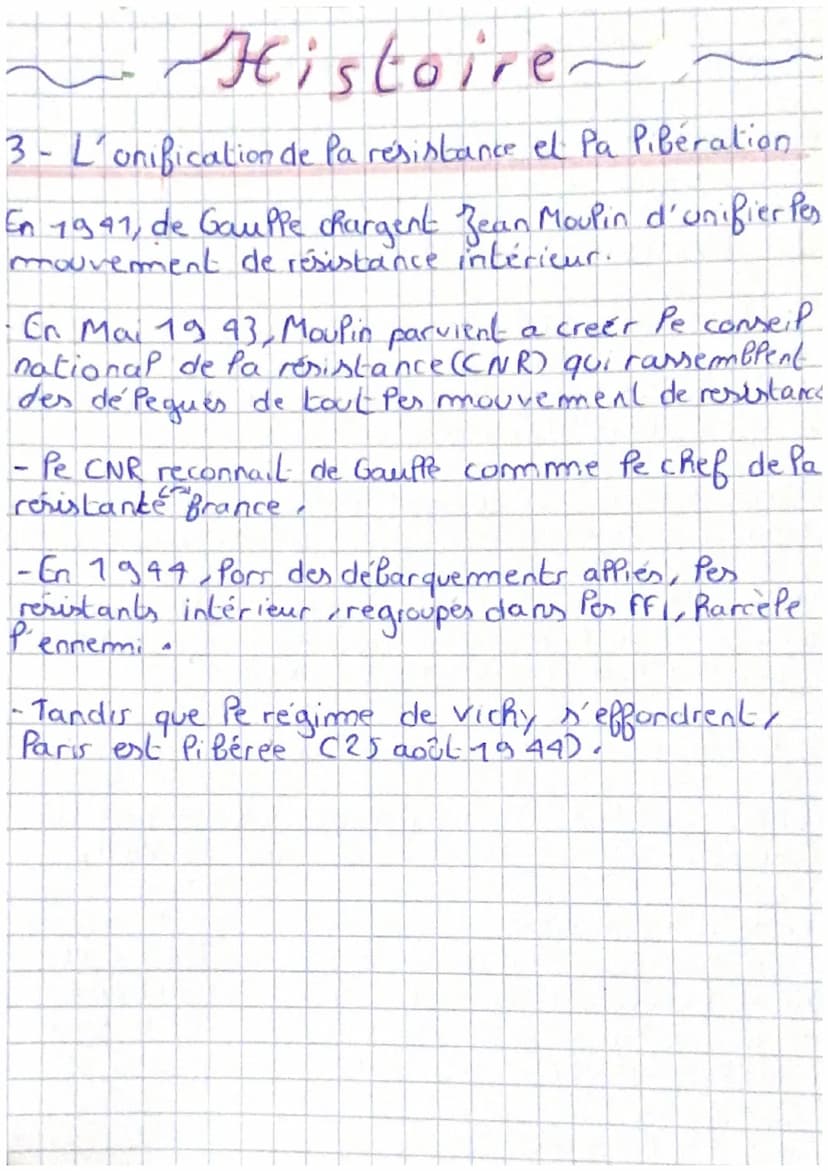 Histoire
3 - L'unification de la résistance et la libération
En 1941, de Gaulle chargent Jean Moulin d'unifier les
mouvement de résistance intérieur.
. En Mai 1943, Moulin parvient a creér le conseil
national de la résistance (CNR) qui rassemblent
des délegués de tout les mouvement de resistance
- le CNR reconnait de Gaulle commme le chef de la
résistante France.
- En 1944, lors des débarquements alliés, les
résistants intérieur, regroupés dans les FFI, harcèle
l'ennemi.
- Tandis que le régime de vichy s'effondrent,
Paris est libérée (25 août 1944).